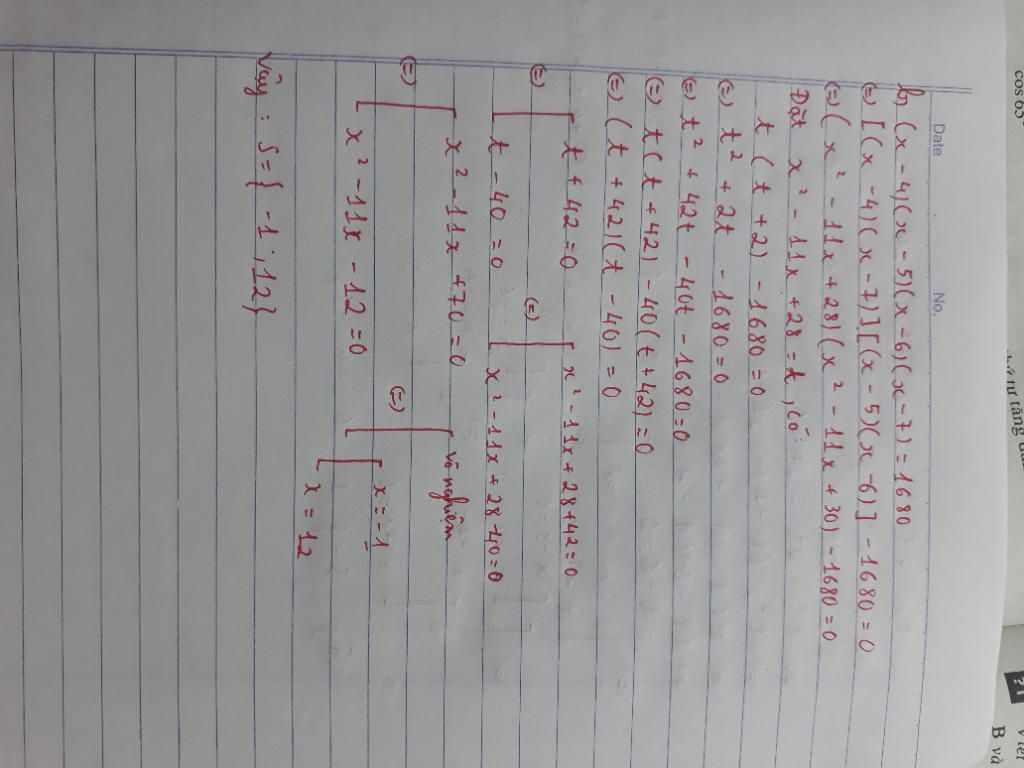 Date No.
b, (x - 4)(x - 5)(x - 6)(x - 7) = 1680
(=) [(x - 4)(x - 7)][(x - 5)(x - 6)] - 1680 = 0
(=) (x² - 11x + 28)(x² - 11x + 30) - 1680 = 0
Đặt x² - 11x + 28 = t, có:
t (t + 2) - 1680 = 0
(=) t² + 2t - 1680 = 0
(=) t² + 42t - 40t - 1680 = 0
(=) t(t + 42) - 40(t + 42) = 0
(=) (t + 42)(t - 40) = 0
(=) [ t + 42 = 0 (=) [ x² - 11x + 28 + 42 = 0
t - 40 = 0 x² - 11x + 28 - 40 = 0
(=) [ x² - 11x + 70 = 0 (=) [ vô nghiệm
x² - 11x - 12 = 0 [ x = -1
x = 12
Vậy : S = { -1 ; 12}
cos 65°
71
Viết
B và